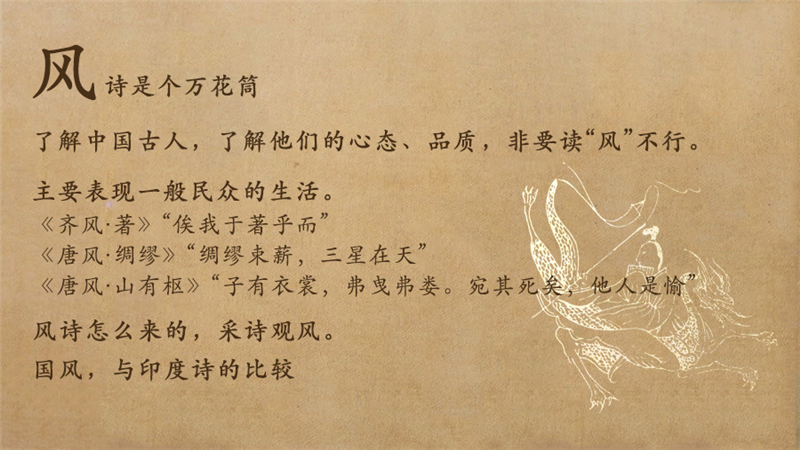 风 诗是个万花筒
了解中国古人，了解他们的心态、品质，非要读“风”不行。
主要表现一般民众的生活。
《齐风·著》“俟我于著乎而”
《唐风·绸缪》“绸缪束薪，三星在天”
《唐风·山有枢》“子有衣裳，弗曳弗娄。宛其死矣，他人是愉”
风诗怎么来的，采诗观风。
国风，与印度诗的比较